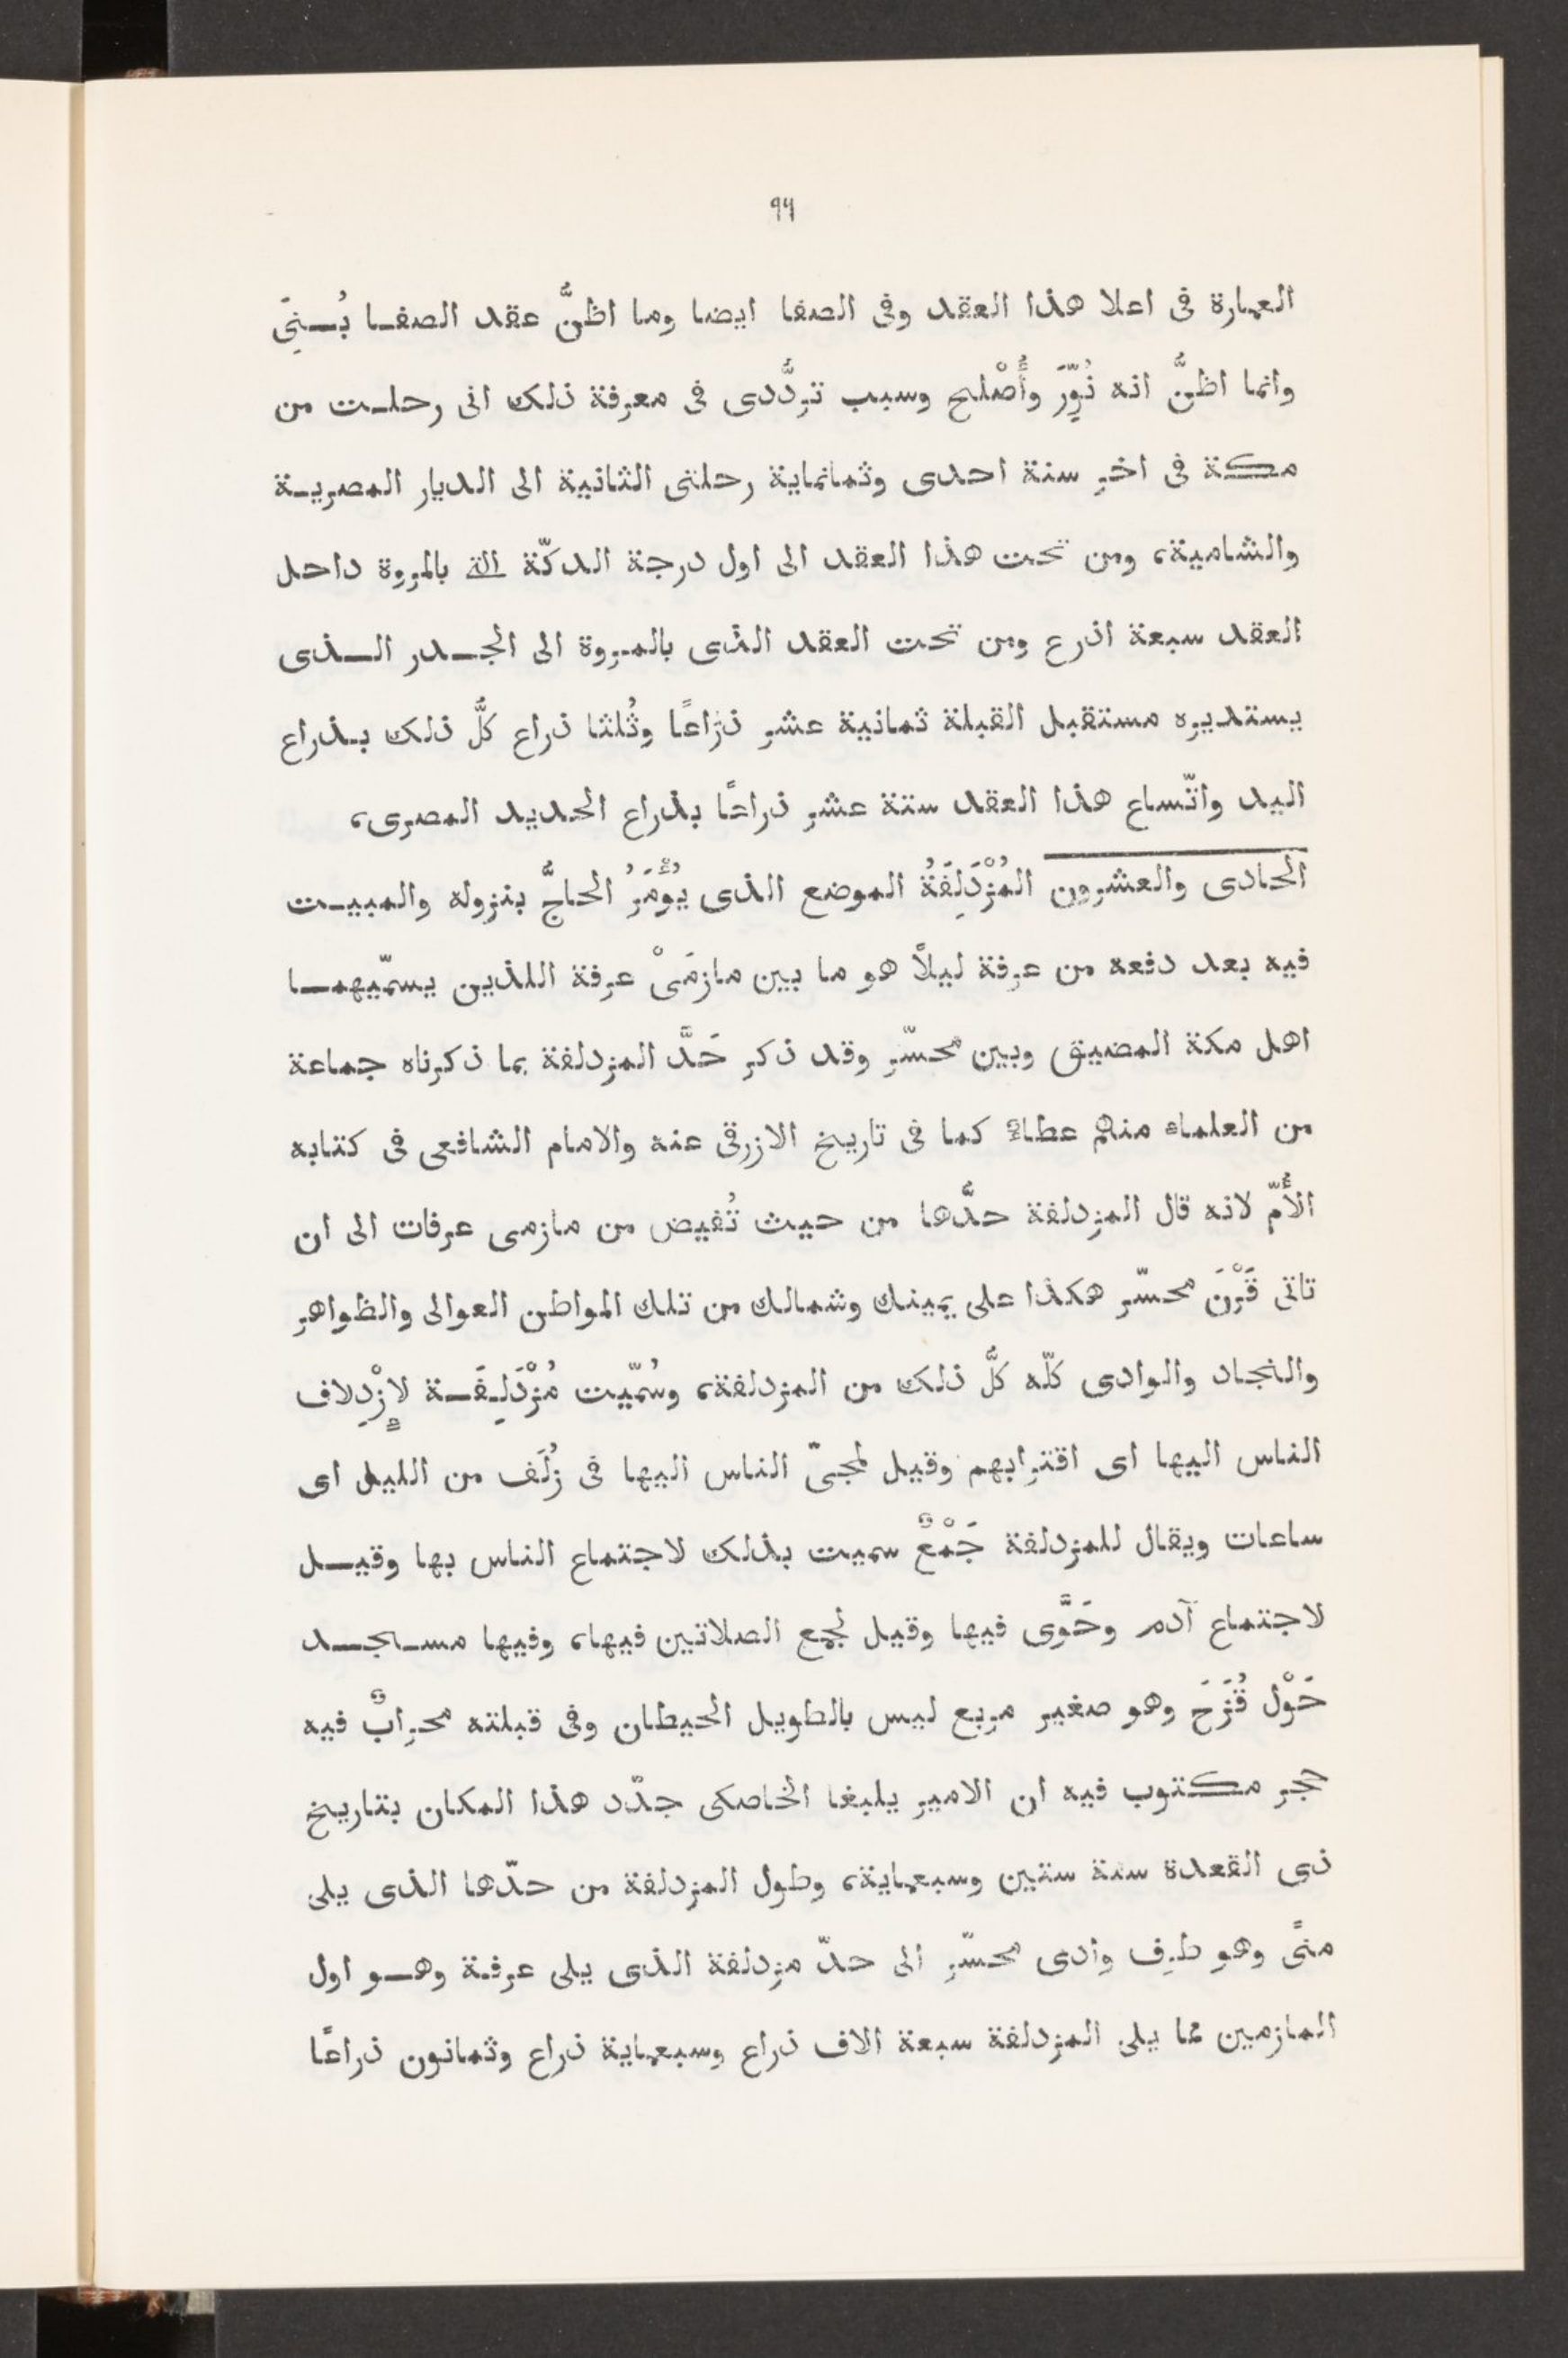 ٩٩
العمارة فى اعلا هذا العقد وفى الصفا ايضا وما اظنُّ عقد الصفـا بُـنِىَ
وانما اظنُّ انه نُوِّرَ وأُصْلح وسبب تردُّدى فى معرفة ذلك انى رحلـت من
مكة فى اخر سنة احدى وثمانماية رحلتى الثانية الى الديار المصريـة
والشامية، ومن تحت هذا العقد الى اول درجة الدكّة التى بالمروة داخل
العقد سبعة اذرع ومن تحت العقد الذى بالمروة الى الجـدر الـذى
يستدبره مستقبل القبلة ثمانية عشر ذراعًا وثُلثا ذراع كلُّ ذلك بذراع
اليد واتّساع هذا العقد ستة عشر ذراعًا بذراع الحديد المصرى،
الحادى والعشرون المُزْدَلِفَةُ الموضع الذى يُؤْمَرُ الحاجُّ بنزوله والمبيـت
فيه بعد دفعه من عرفة ليلاً هو ما بين مازمَىْ عرفة اللذين يسمّيهمـا
اهل مكة المضيق وبين محسّر وقد ذكر حَدَّ المزدلفة بما ذكرناه جماعة
من العلماء منهم عطاءٌ كما فى تاريخ الازرقى عنه والامام الشافعى فى كتابه
الأُمّ لانه قال المزدلفة حدُّها من حيث تُفيض من مازمى عرفات الى ان
تاتى قَرْنَ محسّر هكذا على يمينك وشمالك من تلك المواطن العوالى والظواهر
والنجاد والوادى كلّه كلُّ ذلك من المزدلفة، وسُمّيت مُزْدَلِفَـة لإِزْدِلاف
الناس اليها اى اقترابهم وقيل لمجىّ الناس اليها فى زُلَف من الليل اى
ساعات ويقال للمزدلفة جَمْعٌ سميت بذلك لاجتماع الناس بها وقيـل
لاجتماع آدم وحَوَّى فيها وقيل لجمع الصلاتين فيها، وفيها مسـجـد
حَوْل قُزَحَ وهو صغير مربع ليس بالطويل الحيطان وفى قبلته محرابٌ فيه
حجر مكتوب فيه ان الامير يلبغا الخاصكى جدّد هذا المكان بتاريخ
ذى القعدة سنة ستين وسبعماية، وطول المزدلفة من حدّها الذى يلى
منًى وهو طرف وادى محسّر الى حدّ مزدلفة الذى يلى عرفة وهـو اول
المازمين مما يلى المزدلفة سبعة الاف ذراع وسبعماية ذراع وثمانون ذراعًا